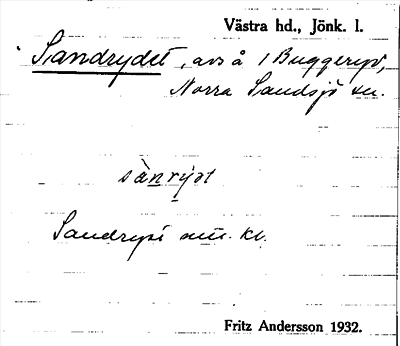 Västra hd., Jönk. l.
Sandrydet, avs å 1 Buggeryd,
Norra Sandsjö sn.
sànrýət
Sandryd
Fritz Andersson 1932.